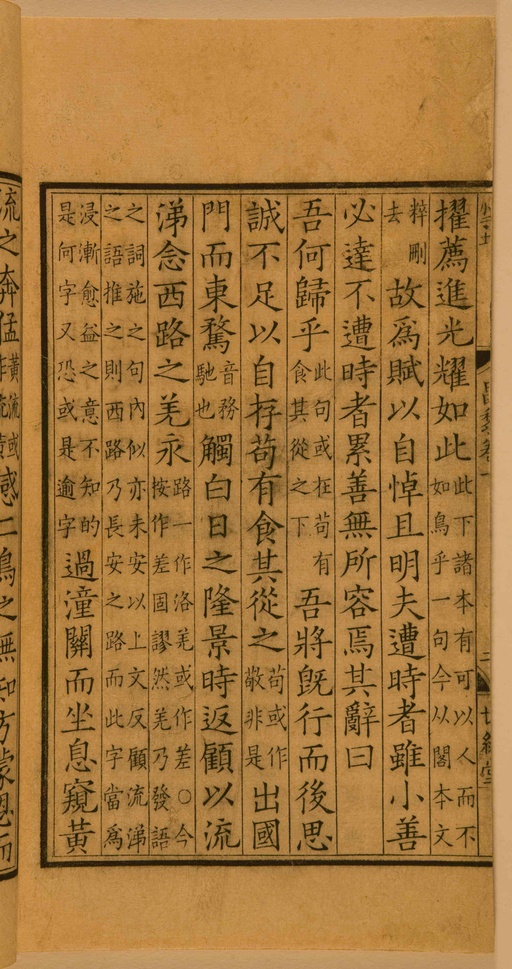 擢薦進光耀如此此下諸本有可以人而不如鳥乎一句今从閣本文
粹刪去故爲賦以自悼且明夫遭時者雖小善
必達不遭時者累善無所容焉其辭曰
吾何歸乎此句或在苟有食其從之下吾將既行而後思
誠不足以自存苟有食其從之苟或作敬非是出國
門而東騖音務馳也觸白日之隆景時返顧以流
涕念西路之羌永路一作洛羌或作差○今按作差固謬然羌乃發語
之詞施之句內似亦未安以上文反顧流涕之語推之則西路乃長安之路而此字當爲
浸漸愈益之意不知的是何字又恐或是逾字過潼關而坐息窺黃
流之奔猛黃流或作流黃感二鳥之無知方蒙恩而